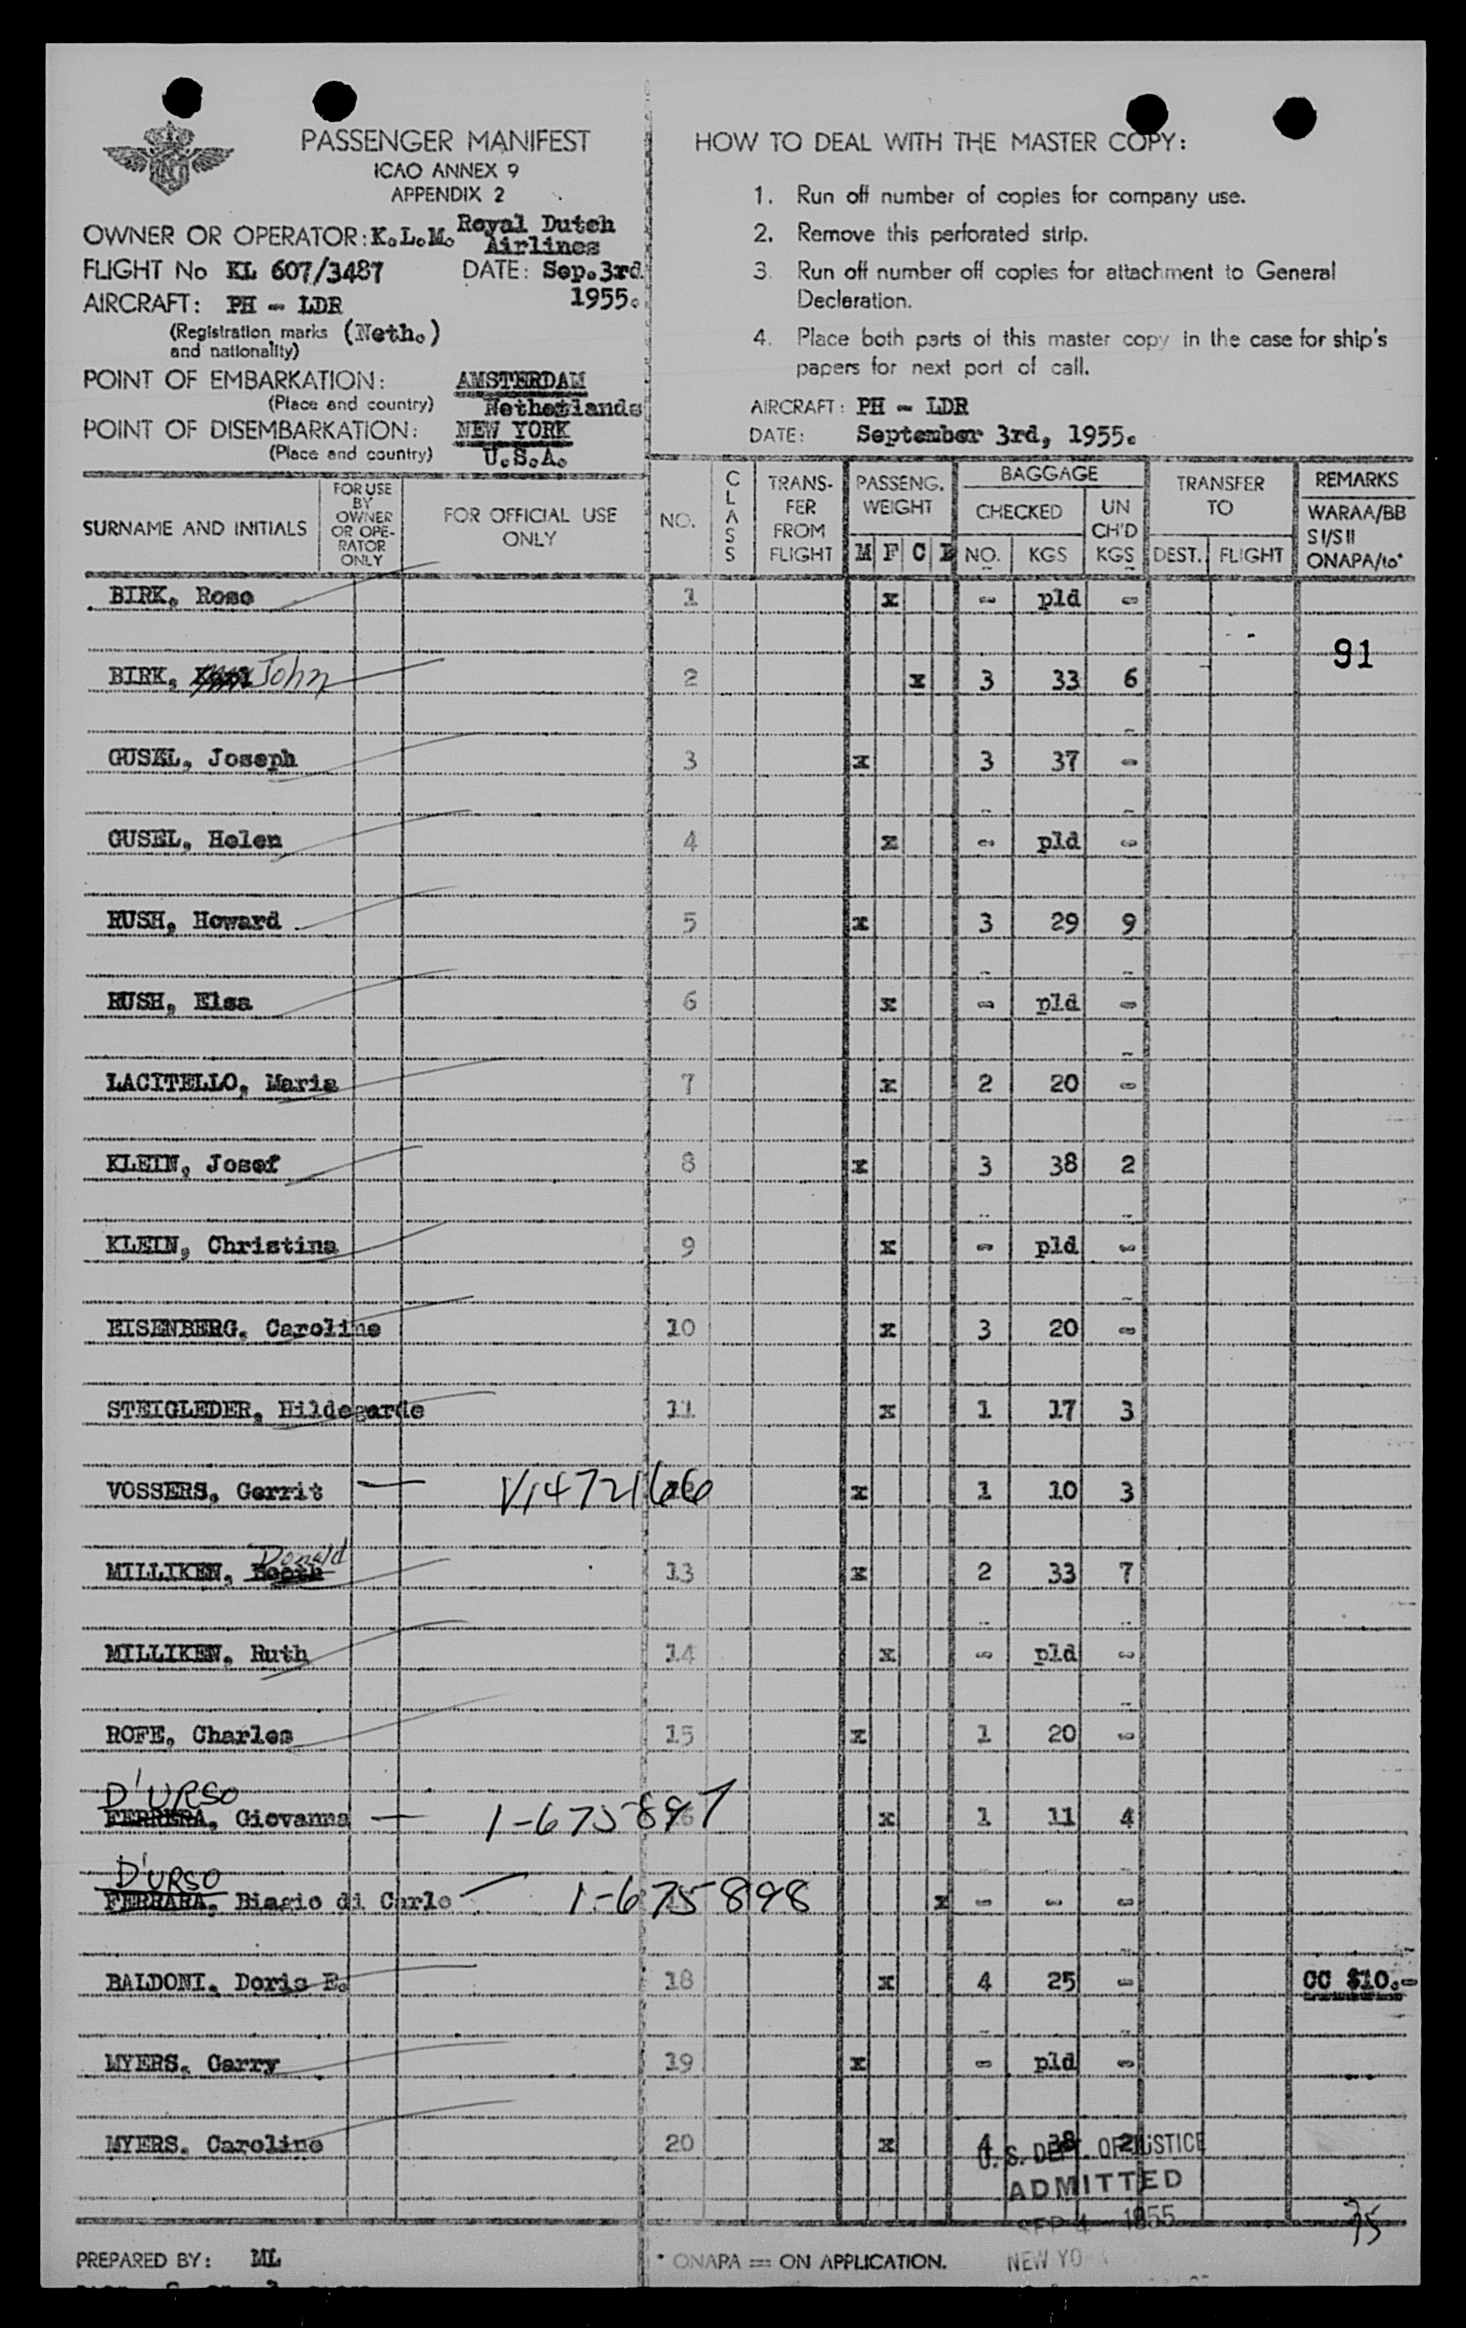 PASSENGER MANIFEST
ICAO ANNEX 9
APPENDIX 2
OWNER OR OPERATOR: K.L.M. Royal Dutch Airlines
FLIGHT No KL 607/3487 DATE: Sep.3rd 1955.
AIRCRAFT: PH - LDR
(Registration marks and nationality) (Neth.)
POINT OF EMBARKATION: AMSTERDAM
(Place and country) Netherlands
POINT OF DISEMBARKATION: NEW YORK
(Place and country) U.S.A.
HOW TO DEAL WITH THE MASTER COPY:
1. Run off number of copies for company use.
2. Remove this perforated strip.
3. Run off number off copies for attachment to General
Declaration.
4. Place both parts of this master copy in the case for ship's
papers for next port of call.
AIRCRAFT: PH - LDR
DATE: September 3rd, 1955.
SURNAME AND INITIALS FOR USE BY OWNER OR OPE-RATOR ONLY FOR OFFICIAL USE ONLY NO. CLASS TRANS-FER FROM FLIGHT PASSENG. WEIGHT M F C BAGGAGE CHECKED NO. KGS UN CH'D KGS TRANSFER TO DEST. FLIGHT REMARKS WARAA/BB SI/SII ONAPA/to*
BIRK, Rose 1 x - pld -
91
BIRK, John 2 x 3 33 6
GUSEL, Joseph 3 x 3 37 -
GUSEL, Helen 4 x - pld -
RUSH, Howard 5 x 3 29 9
RUSH, Elsa 6 x - pld -
LACITELLO, Maria 7 x 2 20 -
KLEIN, Josef 8 x 3 38 2
KLEIN, Christina 9 x - pld -
EISENBERG, Caroline 10 x 3 20 -
STEIGLEDER, Hildegarde 11 x 1 17 3
VOSSERS, Gerrit — V14721666 x 1 10 3
Donald
MILLIKEN, Booth 13 x 2 33 7
MILLIKEN, Ruth 14 x - pld -
ROFE, Charles 15 x 1 20 -
D'URSO
FERRERA, Giovanna — 1-675897 16 x 1 11 4
D'URSO
FERRARA, Biagio di Carlo 1-675898 x - - -
BALDONI, Doris E. 18 x 4 25 - CC $10.-
MYERS, Garry 19 x - pld -
MYERS, Caroline 20 x 4 38 2
U.S. DEPT. OF JUSTICE
ADMITTED
SEP 4 1955
NEW YO
75
PREPARED BY: ML
* ONAPA = ON APPLICATION.